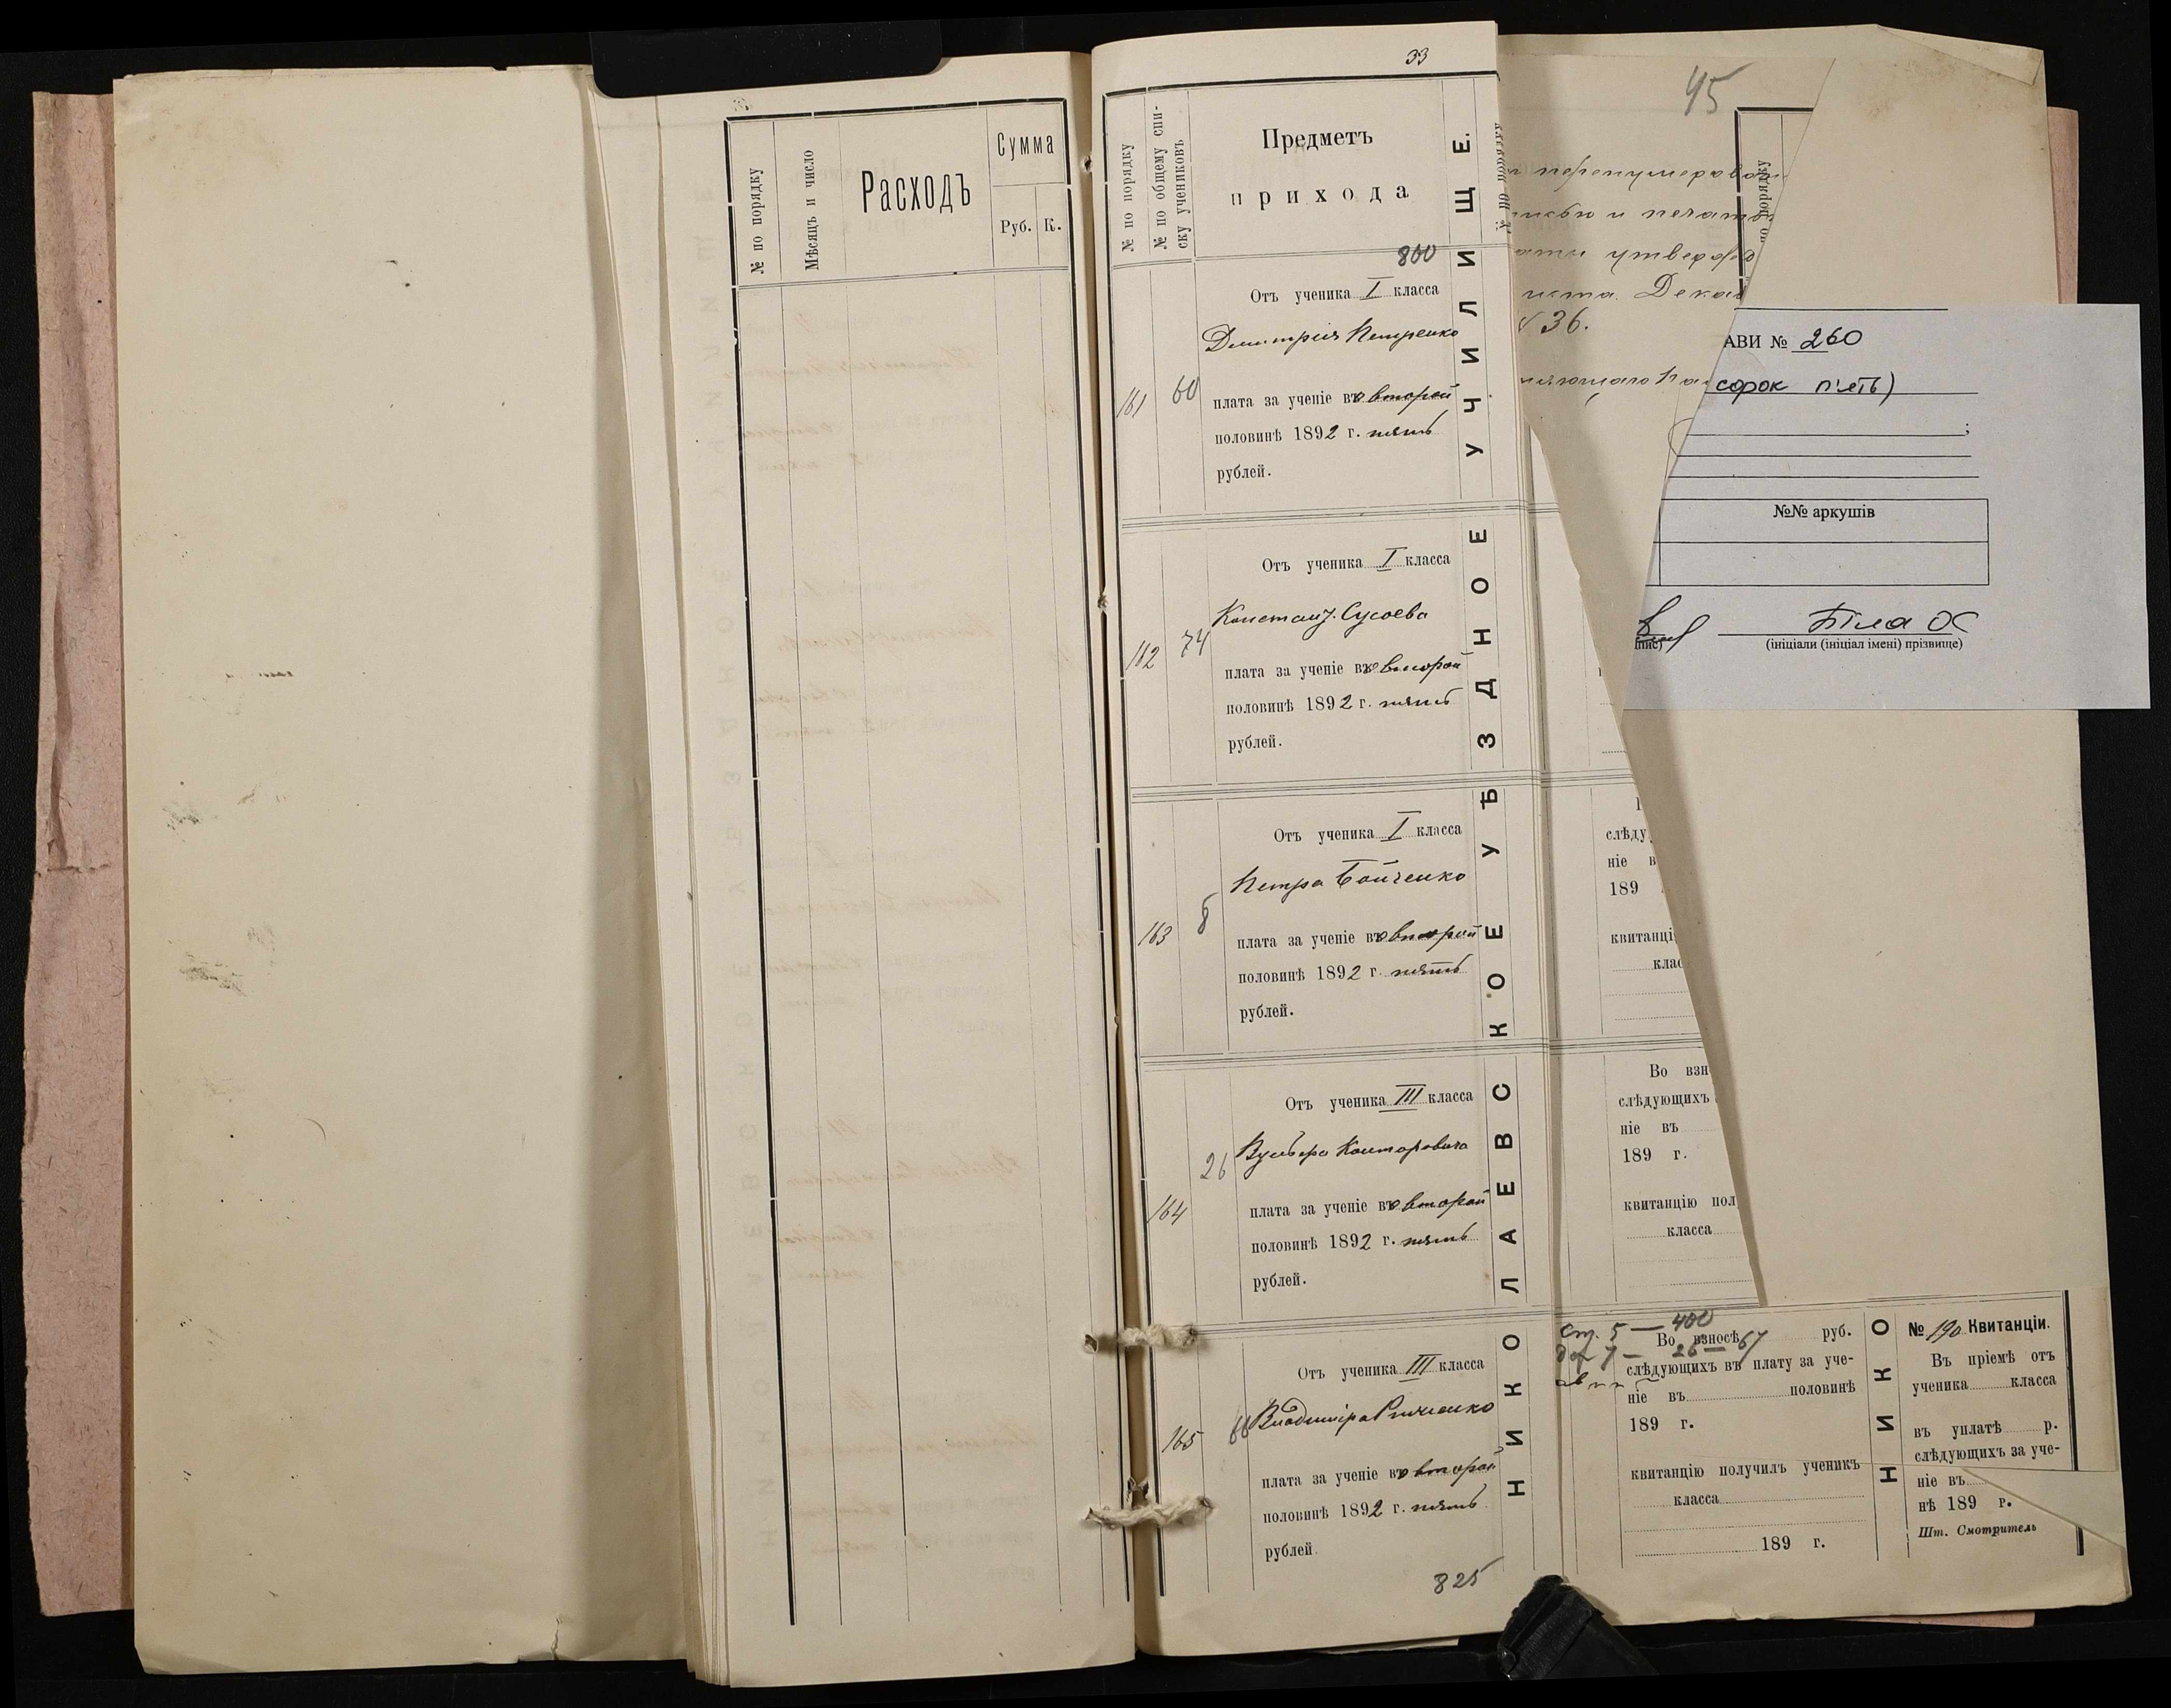 № по порядку
Мѣсяцъ и число
Расходъ
Сумма
Руб. К.
33
№ по порядку
№ по общему спи-
ску учениковъ
Предметъ
прихода
НИКОЛАЕВСКОЕ УѢЗДНОЕ УЧИЛИЩЕ.
800
Отъ ученика I класса
Дмитрія Петренко
161 60
плата за ученіе во второй
половинѣ 1892 г. пять
рублей.
Отъ ученика I класса
Констант. Сусоева
162 74
плата за ученіе во второй
половинѣ 1892 г. пять
рублей.
Отъ ученика I класса
Петра Бойченко
163 8
плата за ученіе во второй
половинѣ 1892 г. пять
рублей.
Отъ ученика III класса
Вульфа Канторовича
164 26
плата за ученіе во второй
половинѣ 1892 г. пять
рублей.
Отъ ученика III класса
Владиміра
165 66
плата за ученіе во второй
половинѣ 1892 г. пять
рублей.
825
№ по порядку
45
по порядку
и печать
Декаб
36.
АВИ № 260
сорок п'ять)
;
№№ аркушів
Біла О
(ініціали (ініціал імені) прізвище)
слѣду
ніе в
189
квитанці
клас
Во взн
слѣдующихъ
ніе въ
189 г.
квитанцію пол
класса
ст. 5 — 400
26 — 67
Во взносѣ руб.
слѣдующихъ въ плату за уче-
ніе въ половинѣ
189 г.
квитанцію получилъ ученикъ
класса
189 г.
НИКО
№ 190 Квитанціи.
Въ пріемѣ отъ
ученика класса
въ уплатѣ р.
слѣдующихъ за уче-
ніе въ
нѣ 189 г.
Шт. Смотритель